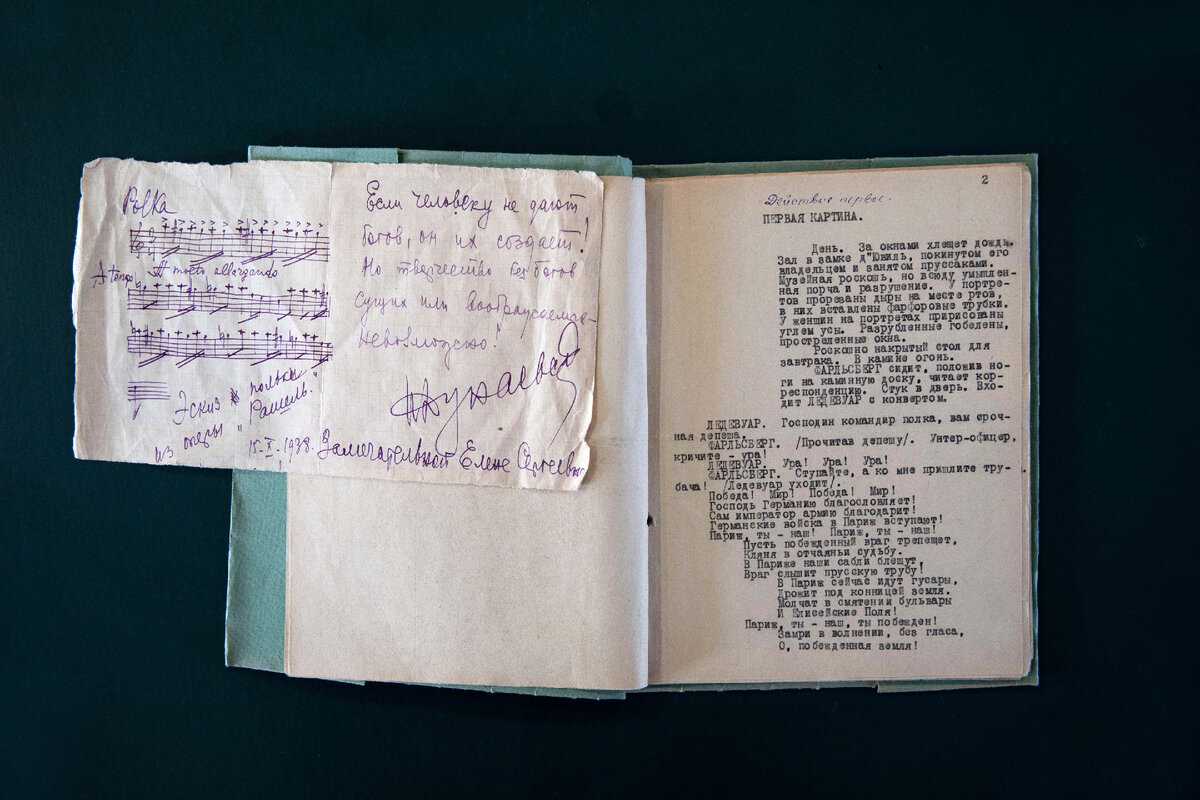 Polka
A tempo A molto allargando
Эскиз польки
из оперы "Рашель."
Если человеку не дают
богов, он их создаёт!
Но творчество без богов
сущих или воображаемых –
невозможно!
15.X.1938. Замечательной Елене Сергеевне
2
Действие первое.
ПЕРВАЯ КАРТИНА.
День. За окнами хлещет дождь.
Зал в замке д"Ювиль, покинутом его
владельцем и занятом пруссаками.
Музейная роскошь, но всюду умышлен-
ная порча и разрушение. У портре-
тов прорезаны дыры на месте ртов,
в них вставлены фарфоровые трубки.
У женщин на портретах пририсованы
углем усы. Разрубленные гобелены,
простреленные окна.
Роскошно накрытый стол для
завтрака. В камине огонь.
ФАРЛЬСБЕРГ сидит, положив но-
ги на каминную доску, читает кор-
респонденцию. Стук в дверь. Вхо-
дит ЛЕДЕВУАР с конвертом.
ЛЕДЕВУАР. Господин командир полка, вам сроч-
ная депеша.
ФАРЛЬСБЕРГ. /Прочитав депешу/. Унтер-офицер,
кричите - ура!
ЛЕДЕВУАР. Ура! Ура! Ура!
ФАРЛЬСБЕРГ. Ступайте, а ко мне пришлите тру-
бача! /Ледевуар уходит/.
Победа! Мир! Победа! Мир!
Господь Германию благословляет!
Сам император армию благодарит!
Германские войска в Париж вступают!
Париж, ты - наш! Париж, ты - наш!
Пусть побежденный враг трепещет,
Кляня в отчаяньи судьбу.
В Париже наши сабли блещут,
Враг слышит прусскую трубу!
В Париж сейчас идут гусары,
Дрожит под конницей земля.
Молчат в смятении бульвары
И Елисейские Поля!
Париж, ты - наш, ты побежден!
Замри в волнении, без гласа,
О, побежденная земля!